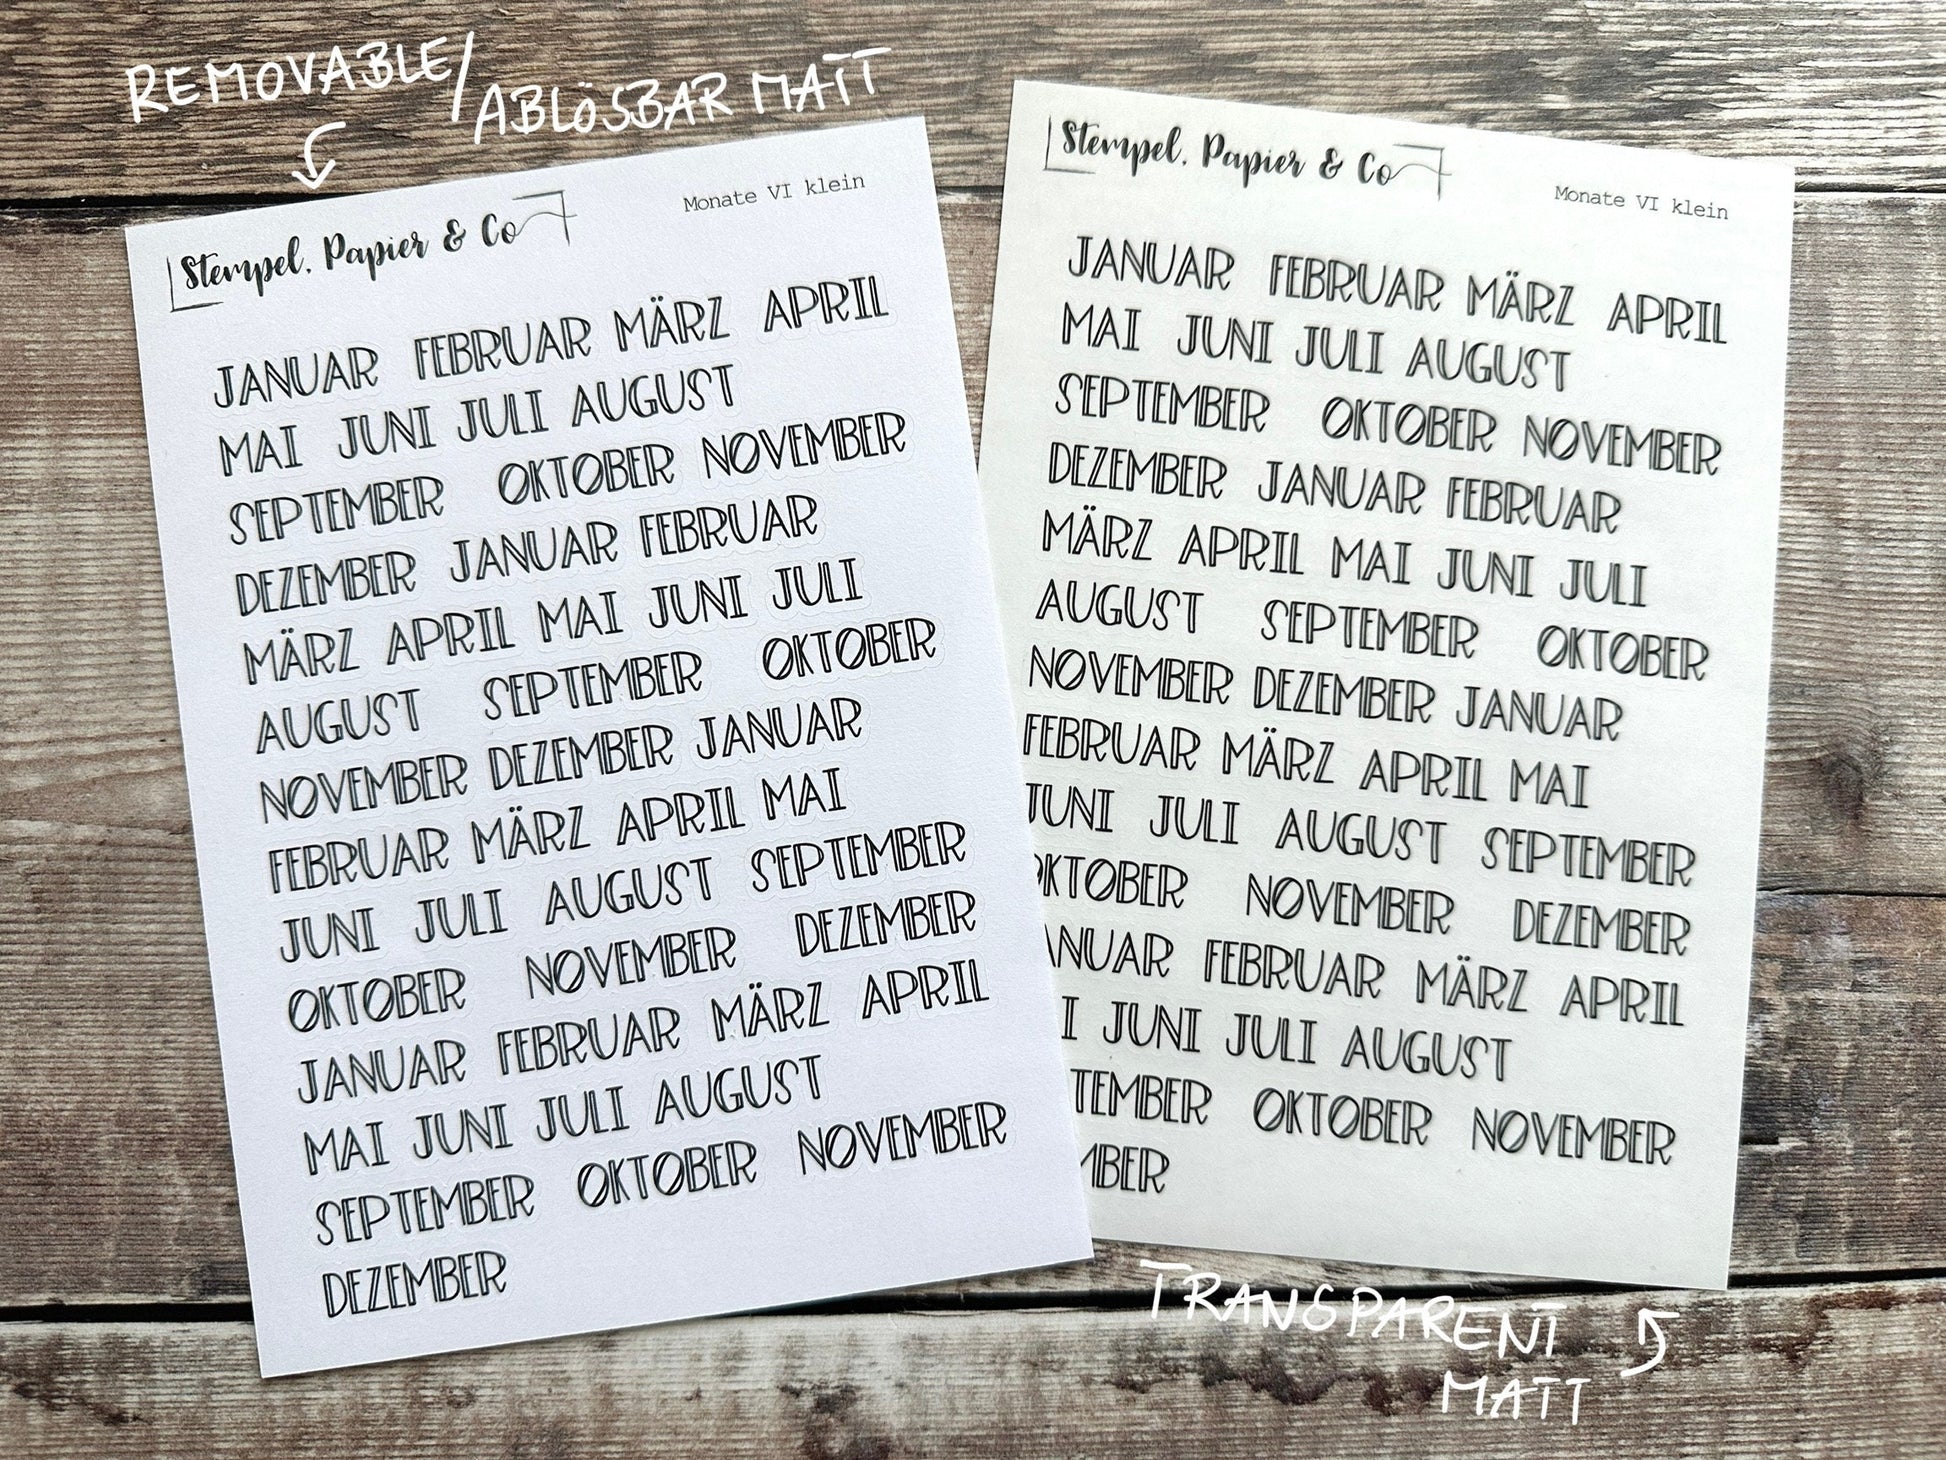 REMOVABLE/
ABLÖSBAR MATT
Stempel, Papier & Co
Monate VI klein
JANUAR FEBRUAR MÄRZ APRIL
MAI JUNI JULI AUGUST
SEPTEMBER OKTOBER NOVEMBER
DEZEMBER JANUAR FEBRUAR
MÄRZ APRIL MAI JUNI JULI
AUGUST SEPTEMBER OKTOBER
NOVEMBER DEZEMBER JANUAR
FEBRUAR MÄRZ APRIL MAI
JUNI JULI AUGUST SEPTEMBER
OKTOBER NOVEMBER DEZEMBER
JANUAR FEBRUAR MÄRZ APRIL
MAI JUNI JULI AUGUST
SEPTEMBER OKTOBER NOVEMBER
DEZEMBER
Stempel, Papier & Co
Monate VI klein
JANUAR FEBRUAR MÄRZ APRIL
MAI JUNI JULI AUGUST
SEPTEMBER OKTOBER NOVEMBER
DEZEMBER JANUAR FEBRUAR
MÄRZ APRIL MAI JUNI JULI
AUGUST SEPTEMBER OKTOBER
NOVEMBER DEZEMBER JANUAR
FEBRUAR MÄRZ APRIL MAI
JUNI JULI AUGUST SEPTEMBER
OKTOBER NOVEMBER DEZEMBER
ANUAR FEBRUAR MÄRZ APRIL
I JUNI JULI AUGUST
TEMBER OKTOBER NOVEMBER
MBER
TRANSPARENT
MATT